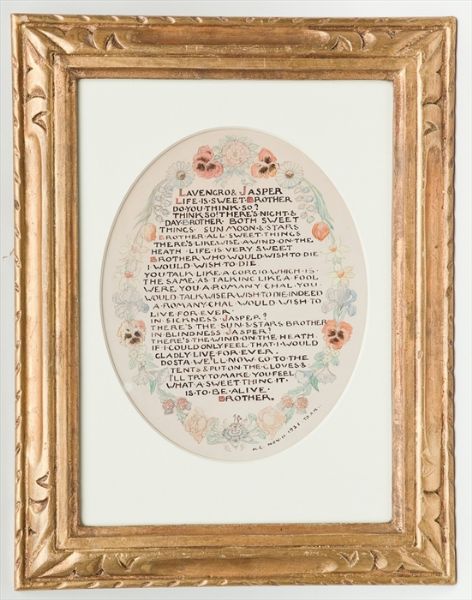 LAVENGRO & JASPER
LIFE·IS·SWEET·BROTHER
DO·YOU·THINK·SO?
THINK·SO! THERE'S·NIGHT·&
DAY·BROTHER·BOTH·SWEET
THINGS·SUN·MOON·&·STARS
BROTHER·ALL·SWEET·THINGS
THERE'S·LIKEWISE·A·WIND·ON·THE
HEATH·LIFE·IS·VERY·SWEET
BROTHER·WHO·WOULD·WISH·TO·DIE
I·WOULD·WISH·TO·DIE
YOU·TALK·LIKE·A·GORGIO·WHICH·IS·
THE·SAME·AS·TALKING·LIKE·A·FOOL
WERE·YOU·A·ROMANY·CHAL·YOU·
WOULD·TALK·WISER·WISH·TO·DIE·INDEED
A·ROMANY·CHAL·WOULD·WISH·TO
LIVE·FOR·EVER·
IN·SICKNESS·JASPER?
THERE'S·THE·SUN·&·STARS·BROTHER
IN·BLINDNESS·JASPER?
THERE'S·THE·WIND·ON·THE·HEATH
IF·I·COULD·ONLY·FEEL·THAT·I·WOULD
GLADLY·LIVE·FOR·EVER.
DOSTA·WE'LL·NOW·GO·TO·THE
TENTS·&·PUT·ON·THE·GLOVES·&
I'LL·TRY·TO·MAKE·YOU·FEEL
WHAT·A·SWEET·THING·IT·
IS·TO·BE·ALIVE·
BROTHER.